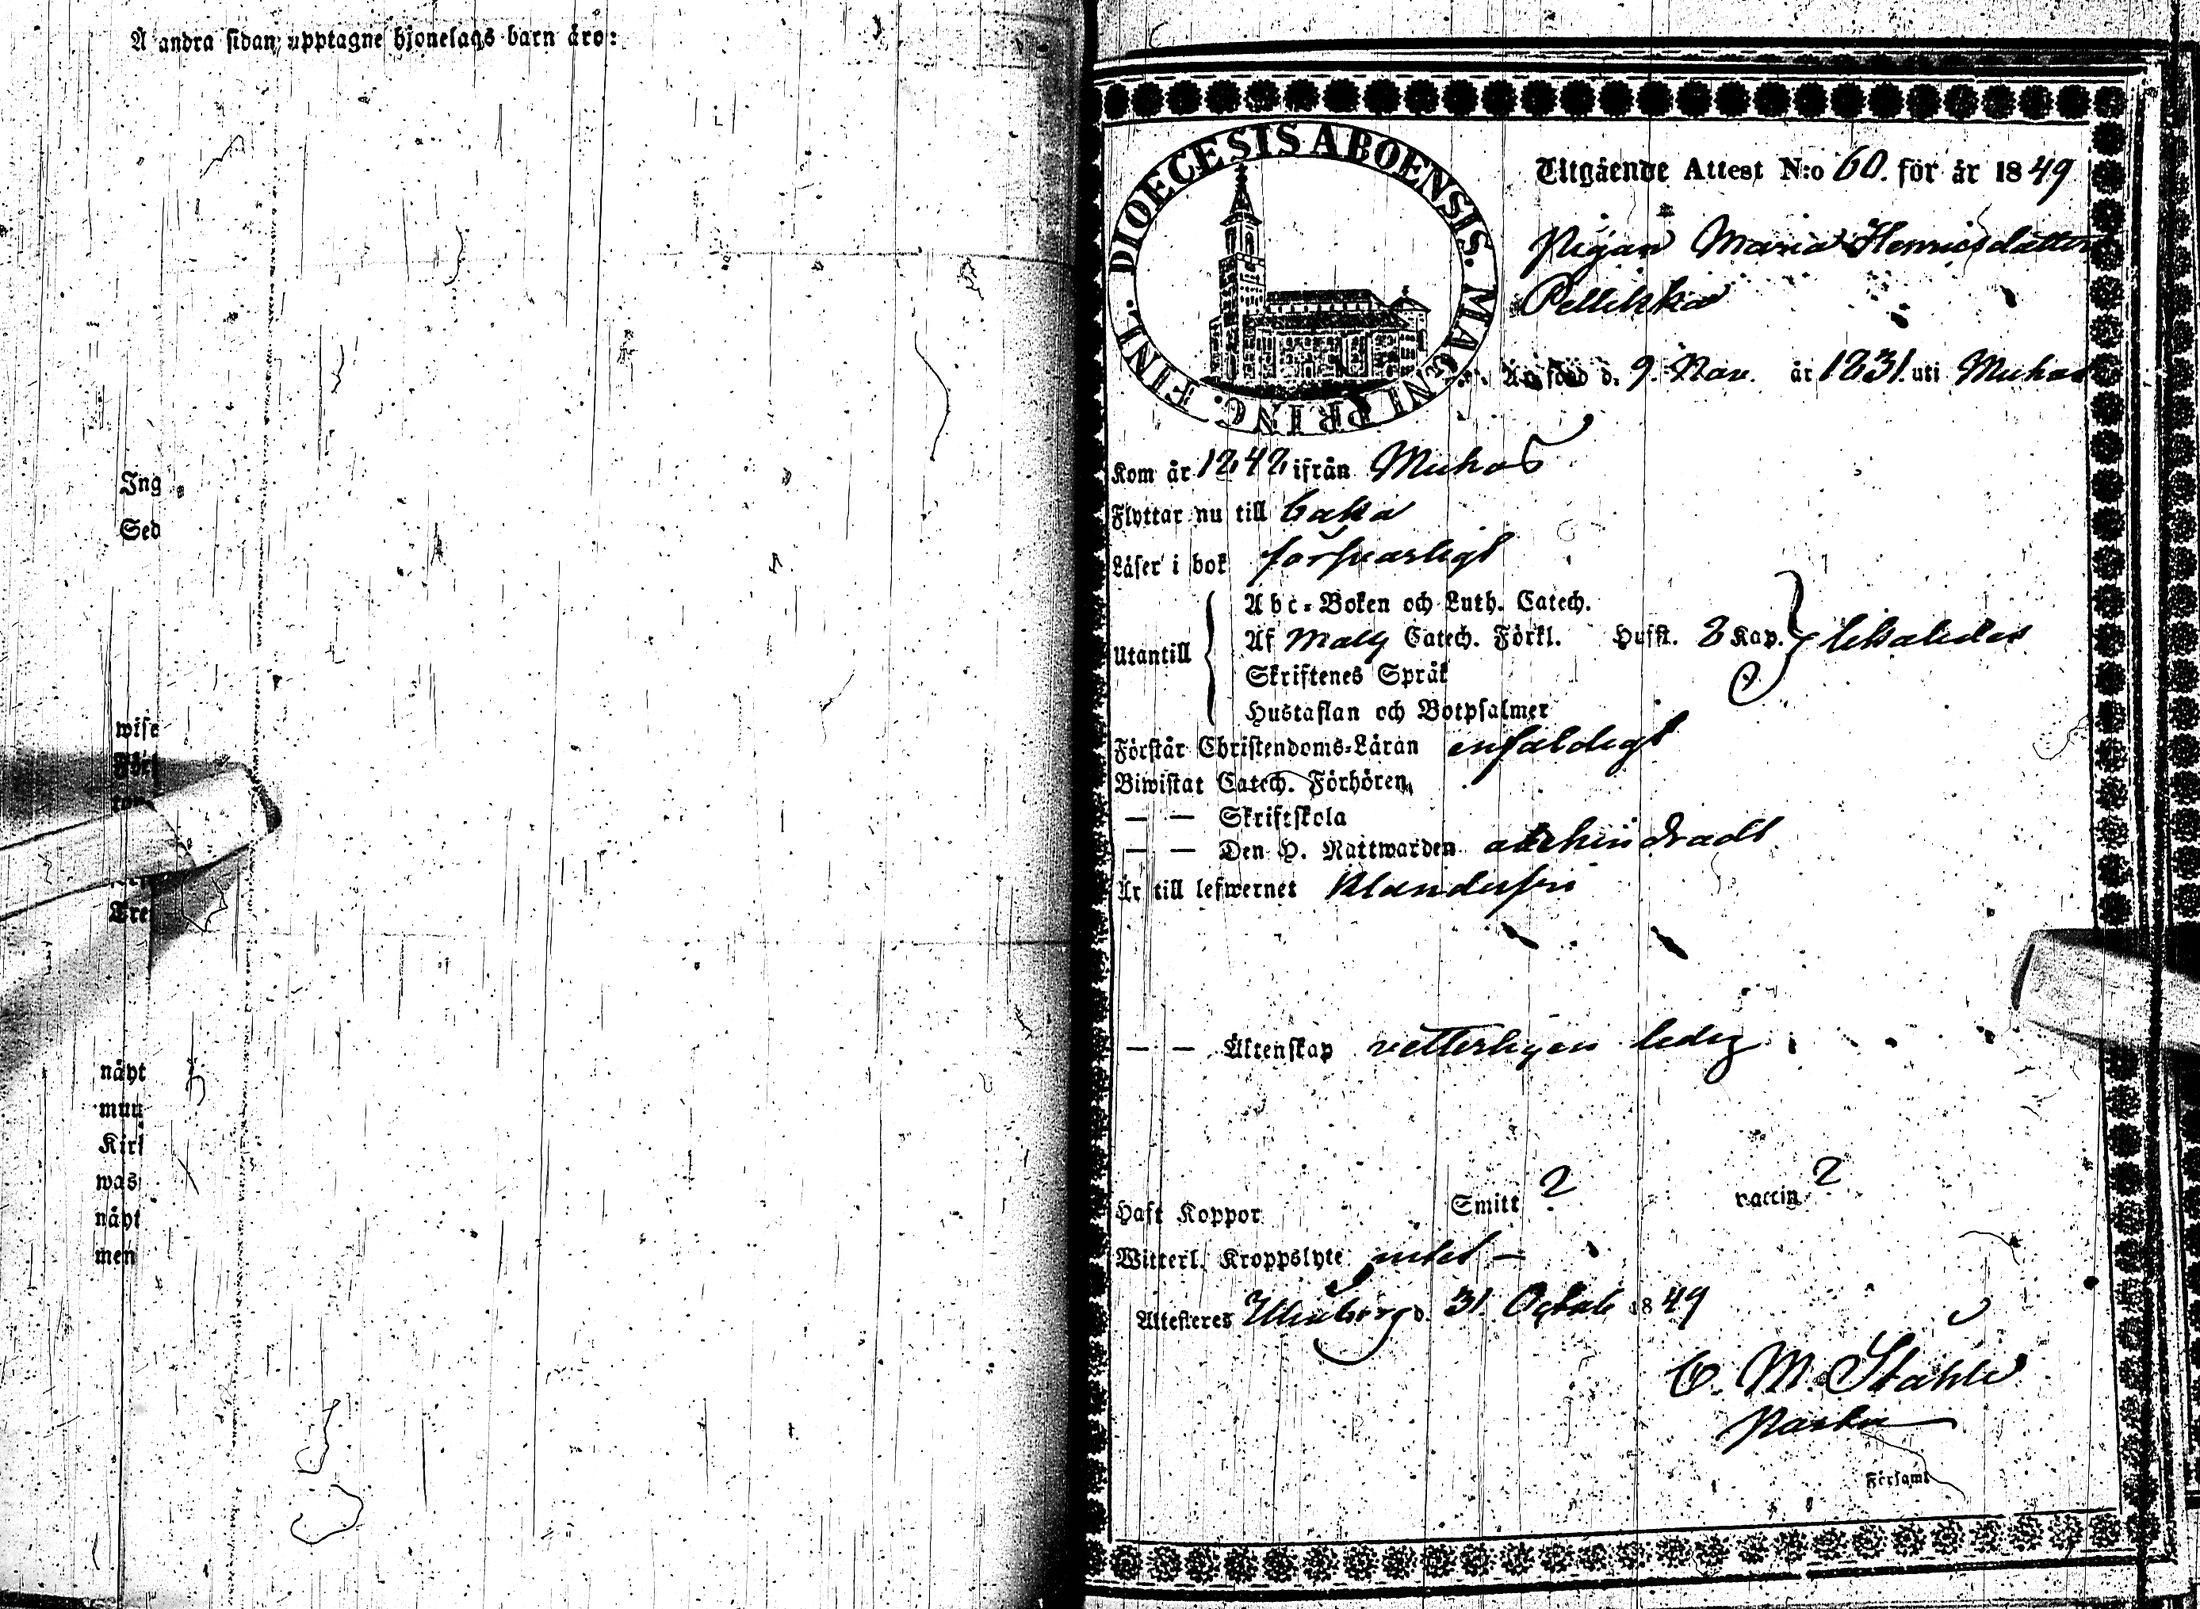 Å andra sidan upptagne hjonelags barn äro:
Ing
Sed
wise
Förs
Tre
näyt
muu
Kirk
was
näyt
men
DIOECESIS ABOENSIS. MAGNI PRINC. FINL.
Utgående Attest N:o 60. för år 1849
Pigan Maria Henricsdotter
Pellikka
Är född d. 9. Nov. år 1831. uti Muhos
Kom år 1842 ifrån Muhos
Flyttar nu till baka
Läser i bok försvarligt
Utantill
Abc-Boken och Luth. Catech.
Af Catech. Förkl. Husst. 2 Kap. likaledes
Skriftenes Språk
Hustaflan och Botpsalmer
Förstår Christendoms-Läran enfaldigt
Biwistat Catech. Förhören
— — Skriftskola
— — Den H. Nattwarden obehindradt
Är till lefwernet klanderfri
— — Äktenskap vetterligen ledig
Haft Koppor Smitt ? vaccin ?
Witterl. Kroppslyte intet —
Attesteres Uleåborg d. 31 Octob. 1849
C. M. Ståhle
Pastor
Församl